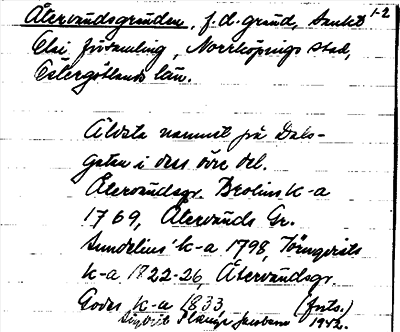 Återvändsgränden, f.d. gränd, Sankt 1-2
Olai församling, Norrköpings stad,
Östergötlands län.
Äldsta namnet på Dals-
gatan i dess övre del.
Återvändsgr. Brolins k-a
1769, Återvänds Gr.
Sundelius' k-a 1798, Törnqvists
k-a 1822-26, Återvändsgr.
Godes k-a 1833, (forts.)
1942.